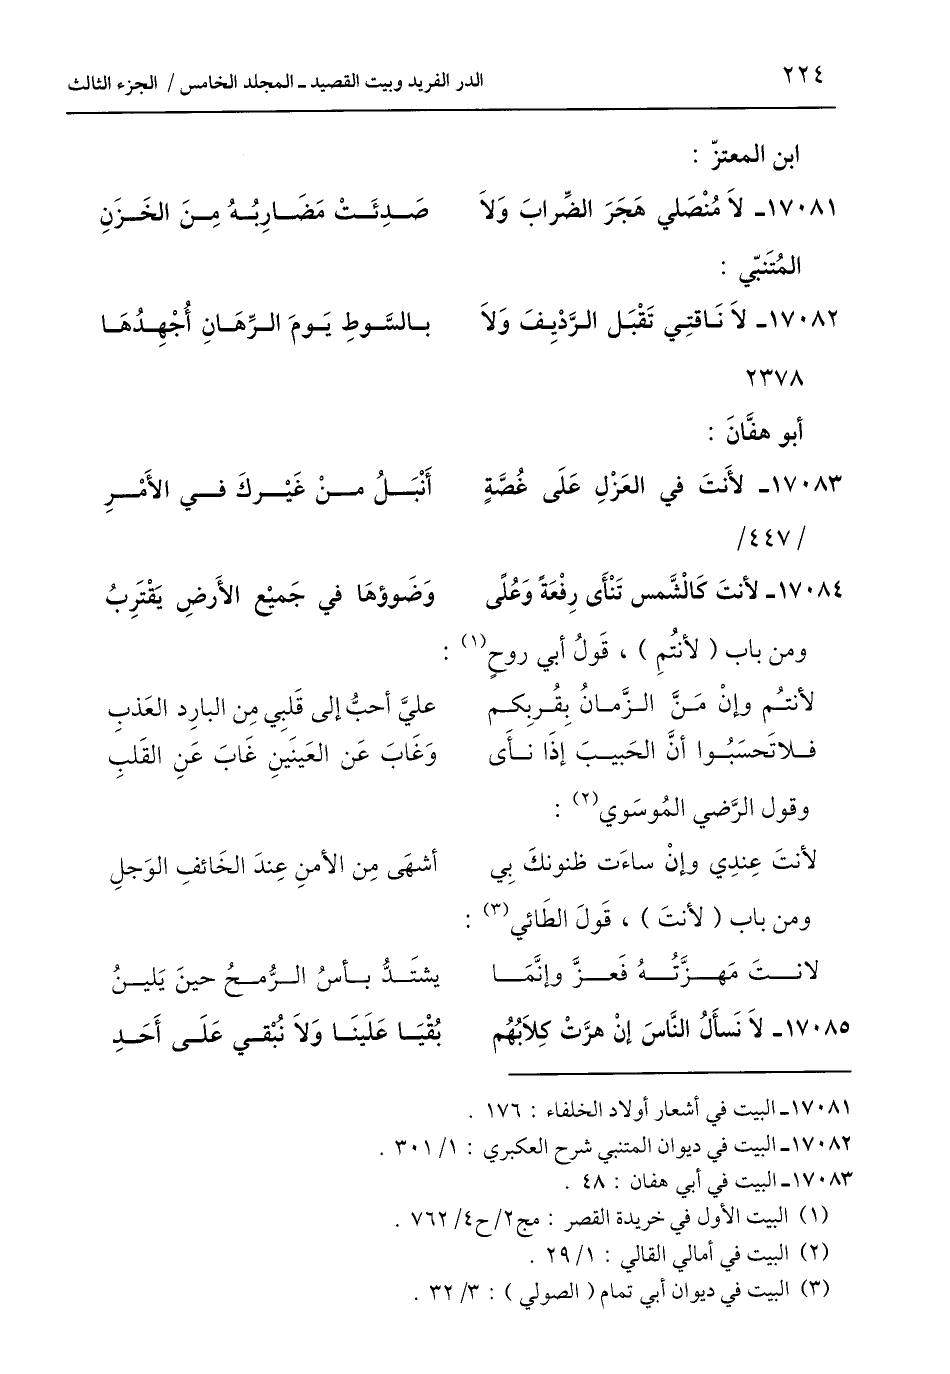 ٢٢٤ الدر الفريد وبيت القصيد ـ المجلد الخامس / الجزء الثالث
ابن المعتزّ :
١٧٠٨١ـ لاَ مُنْصَلي هَجَرَ الضِّرابَ وَلاَ صَـدِئَـتْ مَضَـارِبُـهُ مِـنَ الخَـزَنِ
المُتَنبّي :
١٧٠٨٢ـ لاَ نَـاقتِـي تَقْبَـل الـرَّدِيـفَ وَلاَ بـالسَّـوطِ يَـومَ الـرِّهَـانِ أُجْهِـدُهَـا
٢٣٧٨
أبو هفَّانَ :
١٧٠٨٣ـ لأَنتَ في العَزْلِ عَلَى غُصَّةٍ أَنْبَـلُ مـنْ غَيْـركَ فـي الأَمْـرِ
/٤٤٧/
١٧٠٨٤ـ لأنتَ كَالْشَّمس تَنْأَى رِفْعَةً وَعُلًى وَضَووؤهَا في جَميْعِ الأَرضِ يَقْتَرِبُ
ومن باب ( لأنتُمِ ) ، قَولُ أبي روحٍ(١) :
لأنتـُم وإنْ مَـنَّ الـزَّمـانُ بِقُـربكـم عليَّ أحبُّ إلى قَلبِي مِن البارِد العَذبِ
فـلاتَحسَبُـوا أنَّ الحَبيـبَ إذَا نـأَى وَغَابَ عَن العَينَينِ غَابَ عَنِ القَلبِ
وقول الرَّضي المُوسَوي(٢) :
لأنتَ عِندِي وإنْ ساءَت ظنونكَ بِي أشهَى مِن الأمنِ عِندَ الخَائفِ الوَجلِ
ومن باب ( لأنتَ ) ، قَولَ الطَائي(٣) :
لانـتَ مَهـزَّتُـهُ فَعـزَّ وإنَّمَـا يشتَـدُّ بـأسُ الـرُّمـحُ حينَ يَلينُ
١٧٠٨٥ـ لاَ نَسأَلُ النَّاسَ إنْ هرَّتْ كِلاَبُهُم بُقْيَـا عَلَينَـا وَلاَ نُبْقـي عَلَـى أَحَـدِ
١٧٠٨١ـ البيت في أشعار أولاد الخلفاء : ١٧٦ .
١٧٠٨٢ـ البيت في ديوان المتنبي شرح العكبري : ١/ ٣٠١ .
١٧٠٨٣ـ البيت في أبي هفان : ٤٨ .
(١) البيت الأول في خريدة القصر : مج٢/ح٤/ ٧٦٢ .
(٢) البيت في أمالي القالي : ١/ ٢٩ .
(٣) البيت في ديوان أبي تمام ( الصولي ) : ٣/ ٣٢ .